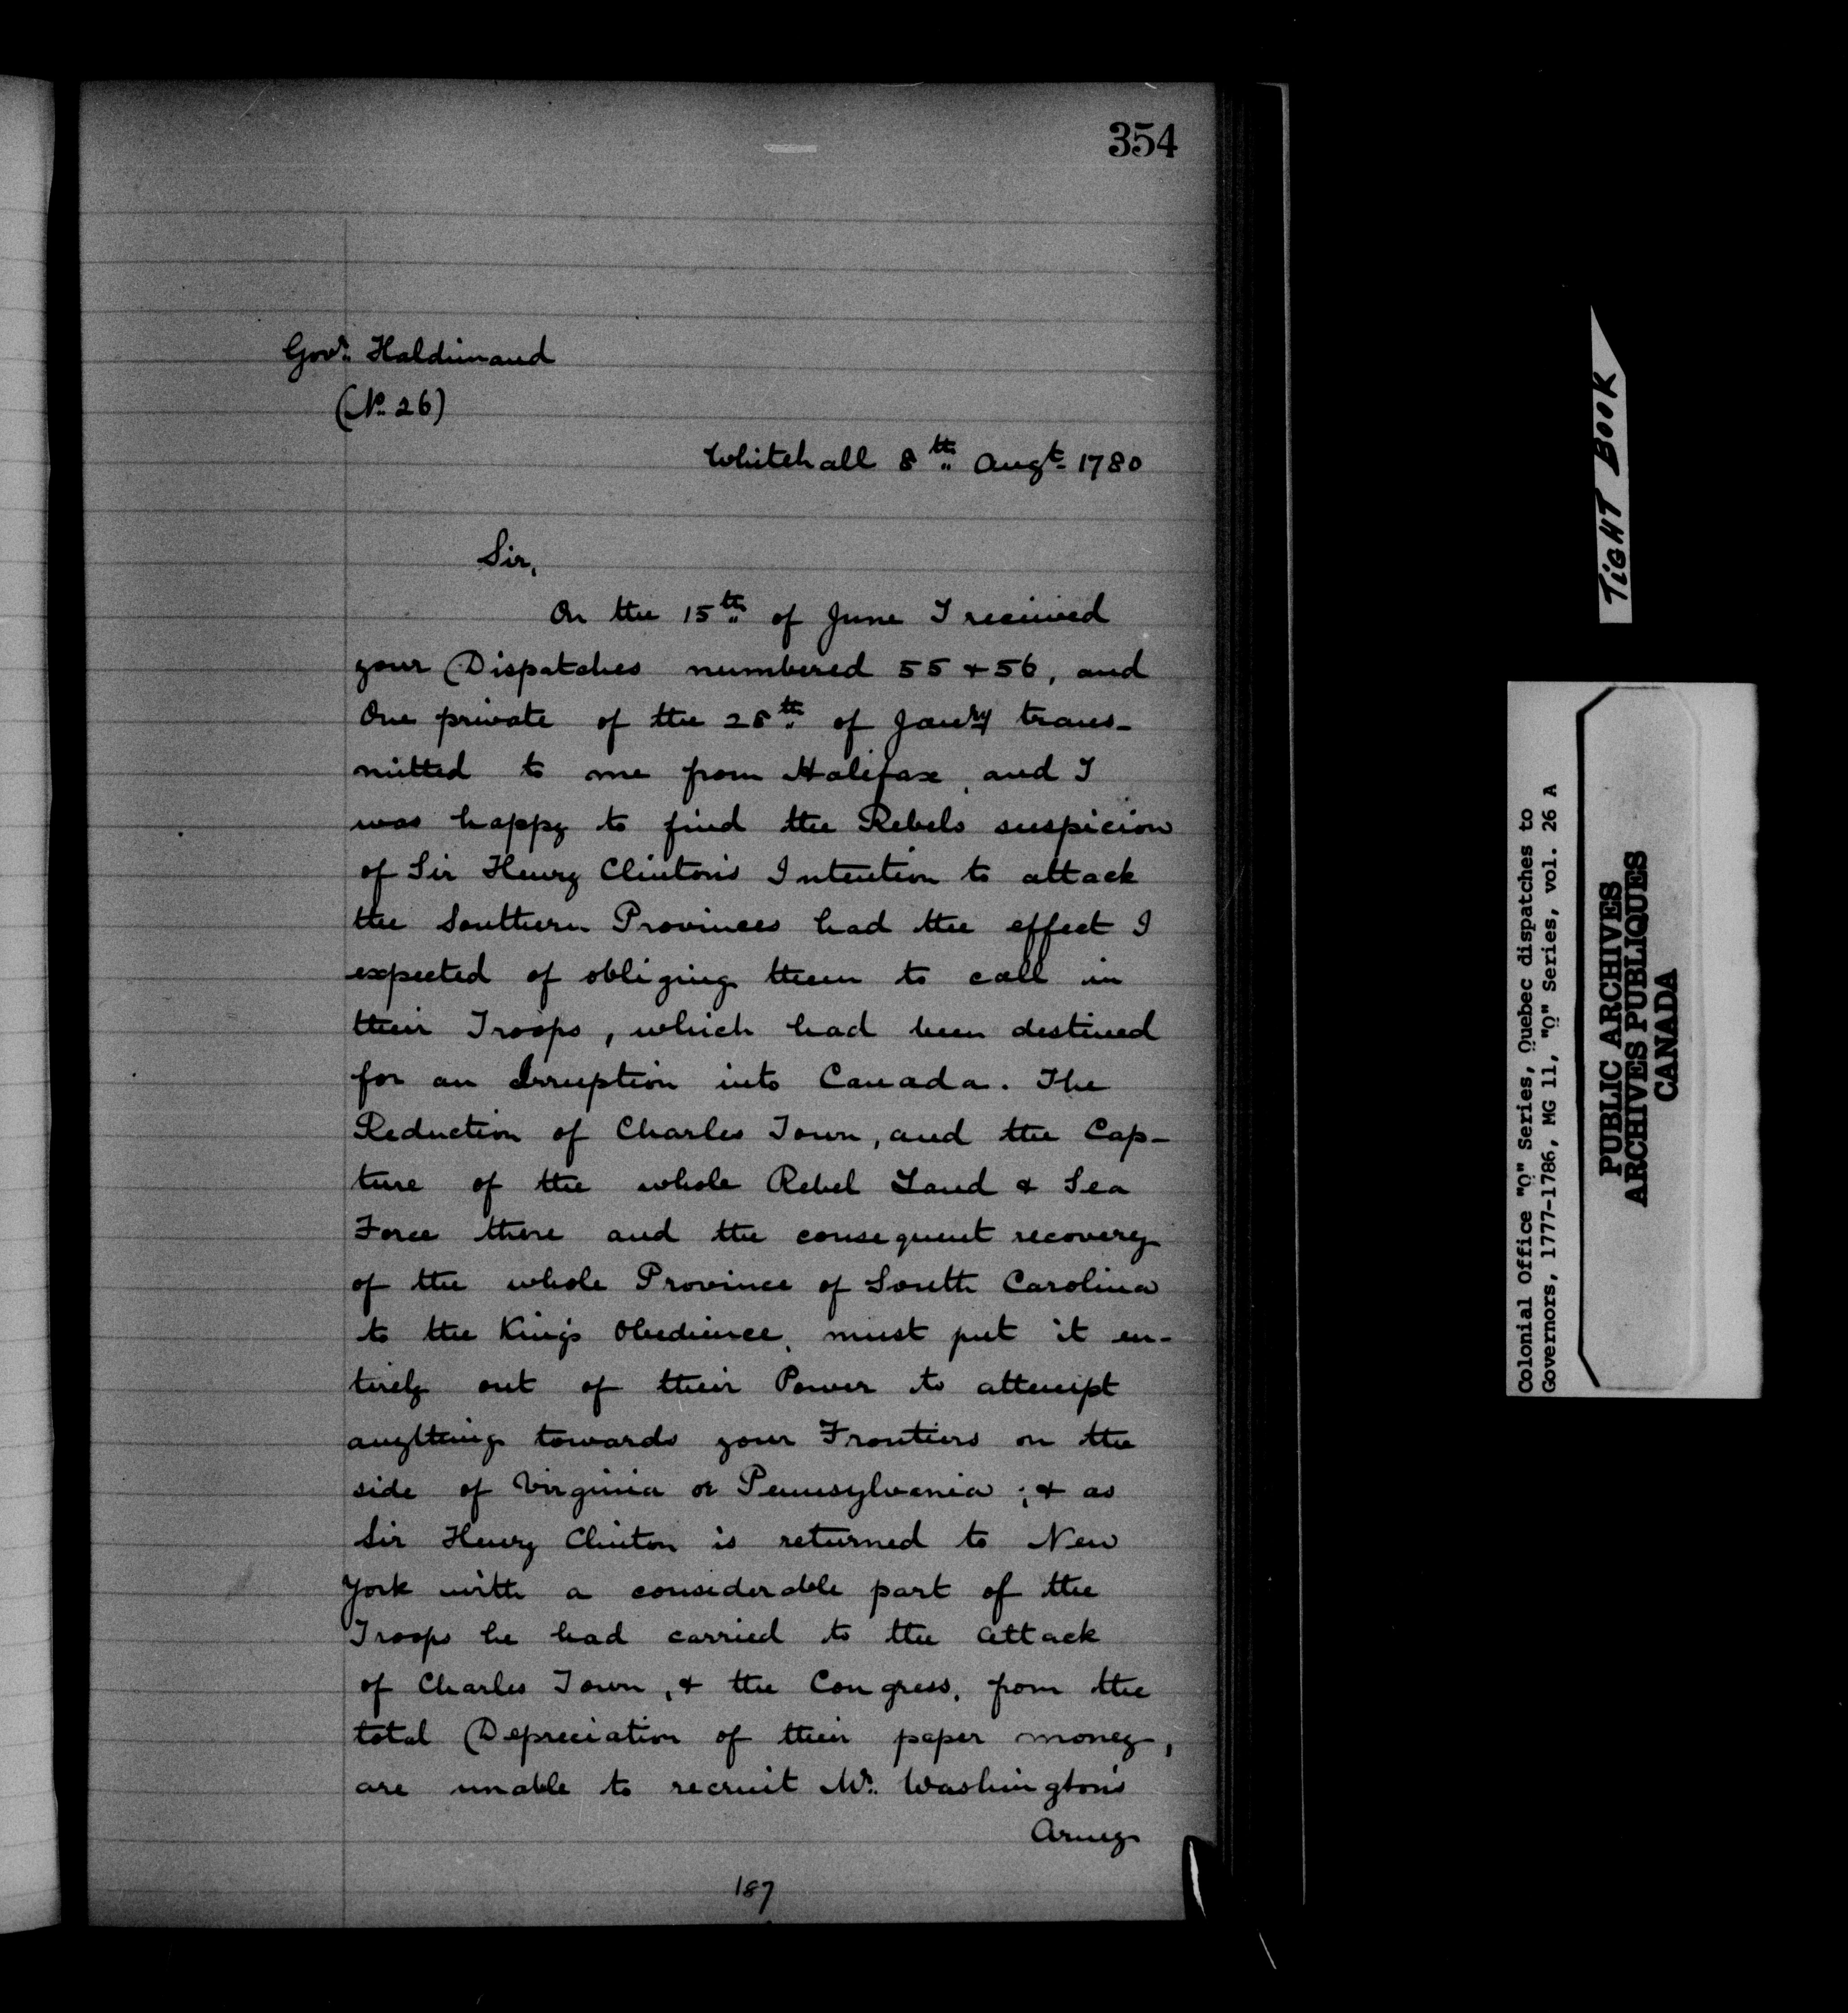 354
Govr. Haldimand
(No. 26)
Whitehall 8th Augt. 1780
Sir,
On the 15th of June I received
your Dispatches numbered 55 & 56, and
One private of the 28th of Janry trans-
mitted to me from Halifax, and I
was happy to find the Rebels suspicion
of Sir Henry Clinton's Intention to attack
the Southern Provinces had the effect I
expected of obliging them to call in
their Troops, which had been destined
for an Irruption into Canada. The
Reduction of Charles Town, and the Cap-
ture of the whole Rebel Land & Sea
Force there and the consequent recovery
of the whole Province of South Carolina
to the King's Obedience, must put it en-
tirely out of their Power to attempt
anything towards your Frontiers on the
side of Virginia or Pennsylvania; & as
Sir Henry Clinton is returned to New
York with a considerable part of the
Troops he had carried to the attack
of Charles Town, & the Congress, from the
total Depreciation of their paper money,
are unable to recruit Mr. Washington's
Army
187
TIGHT BOOK
Colonial Office "Q" Series, Quebec dispatches to
Governors, 1777-1786, MG 11, "Q" Series, vol. 26 A
PUBLIC ARCHIVES
ARCHIVES PUBLIQUES
CANADA